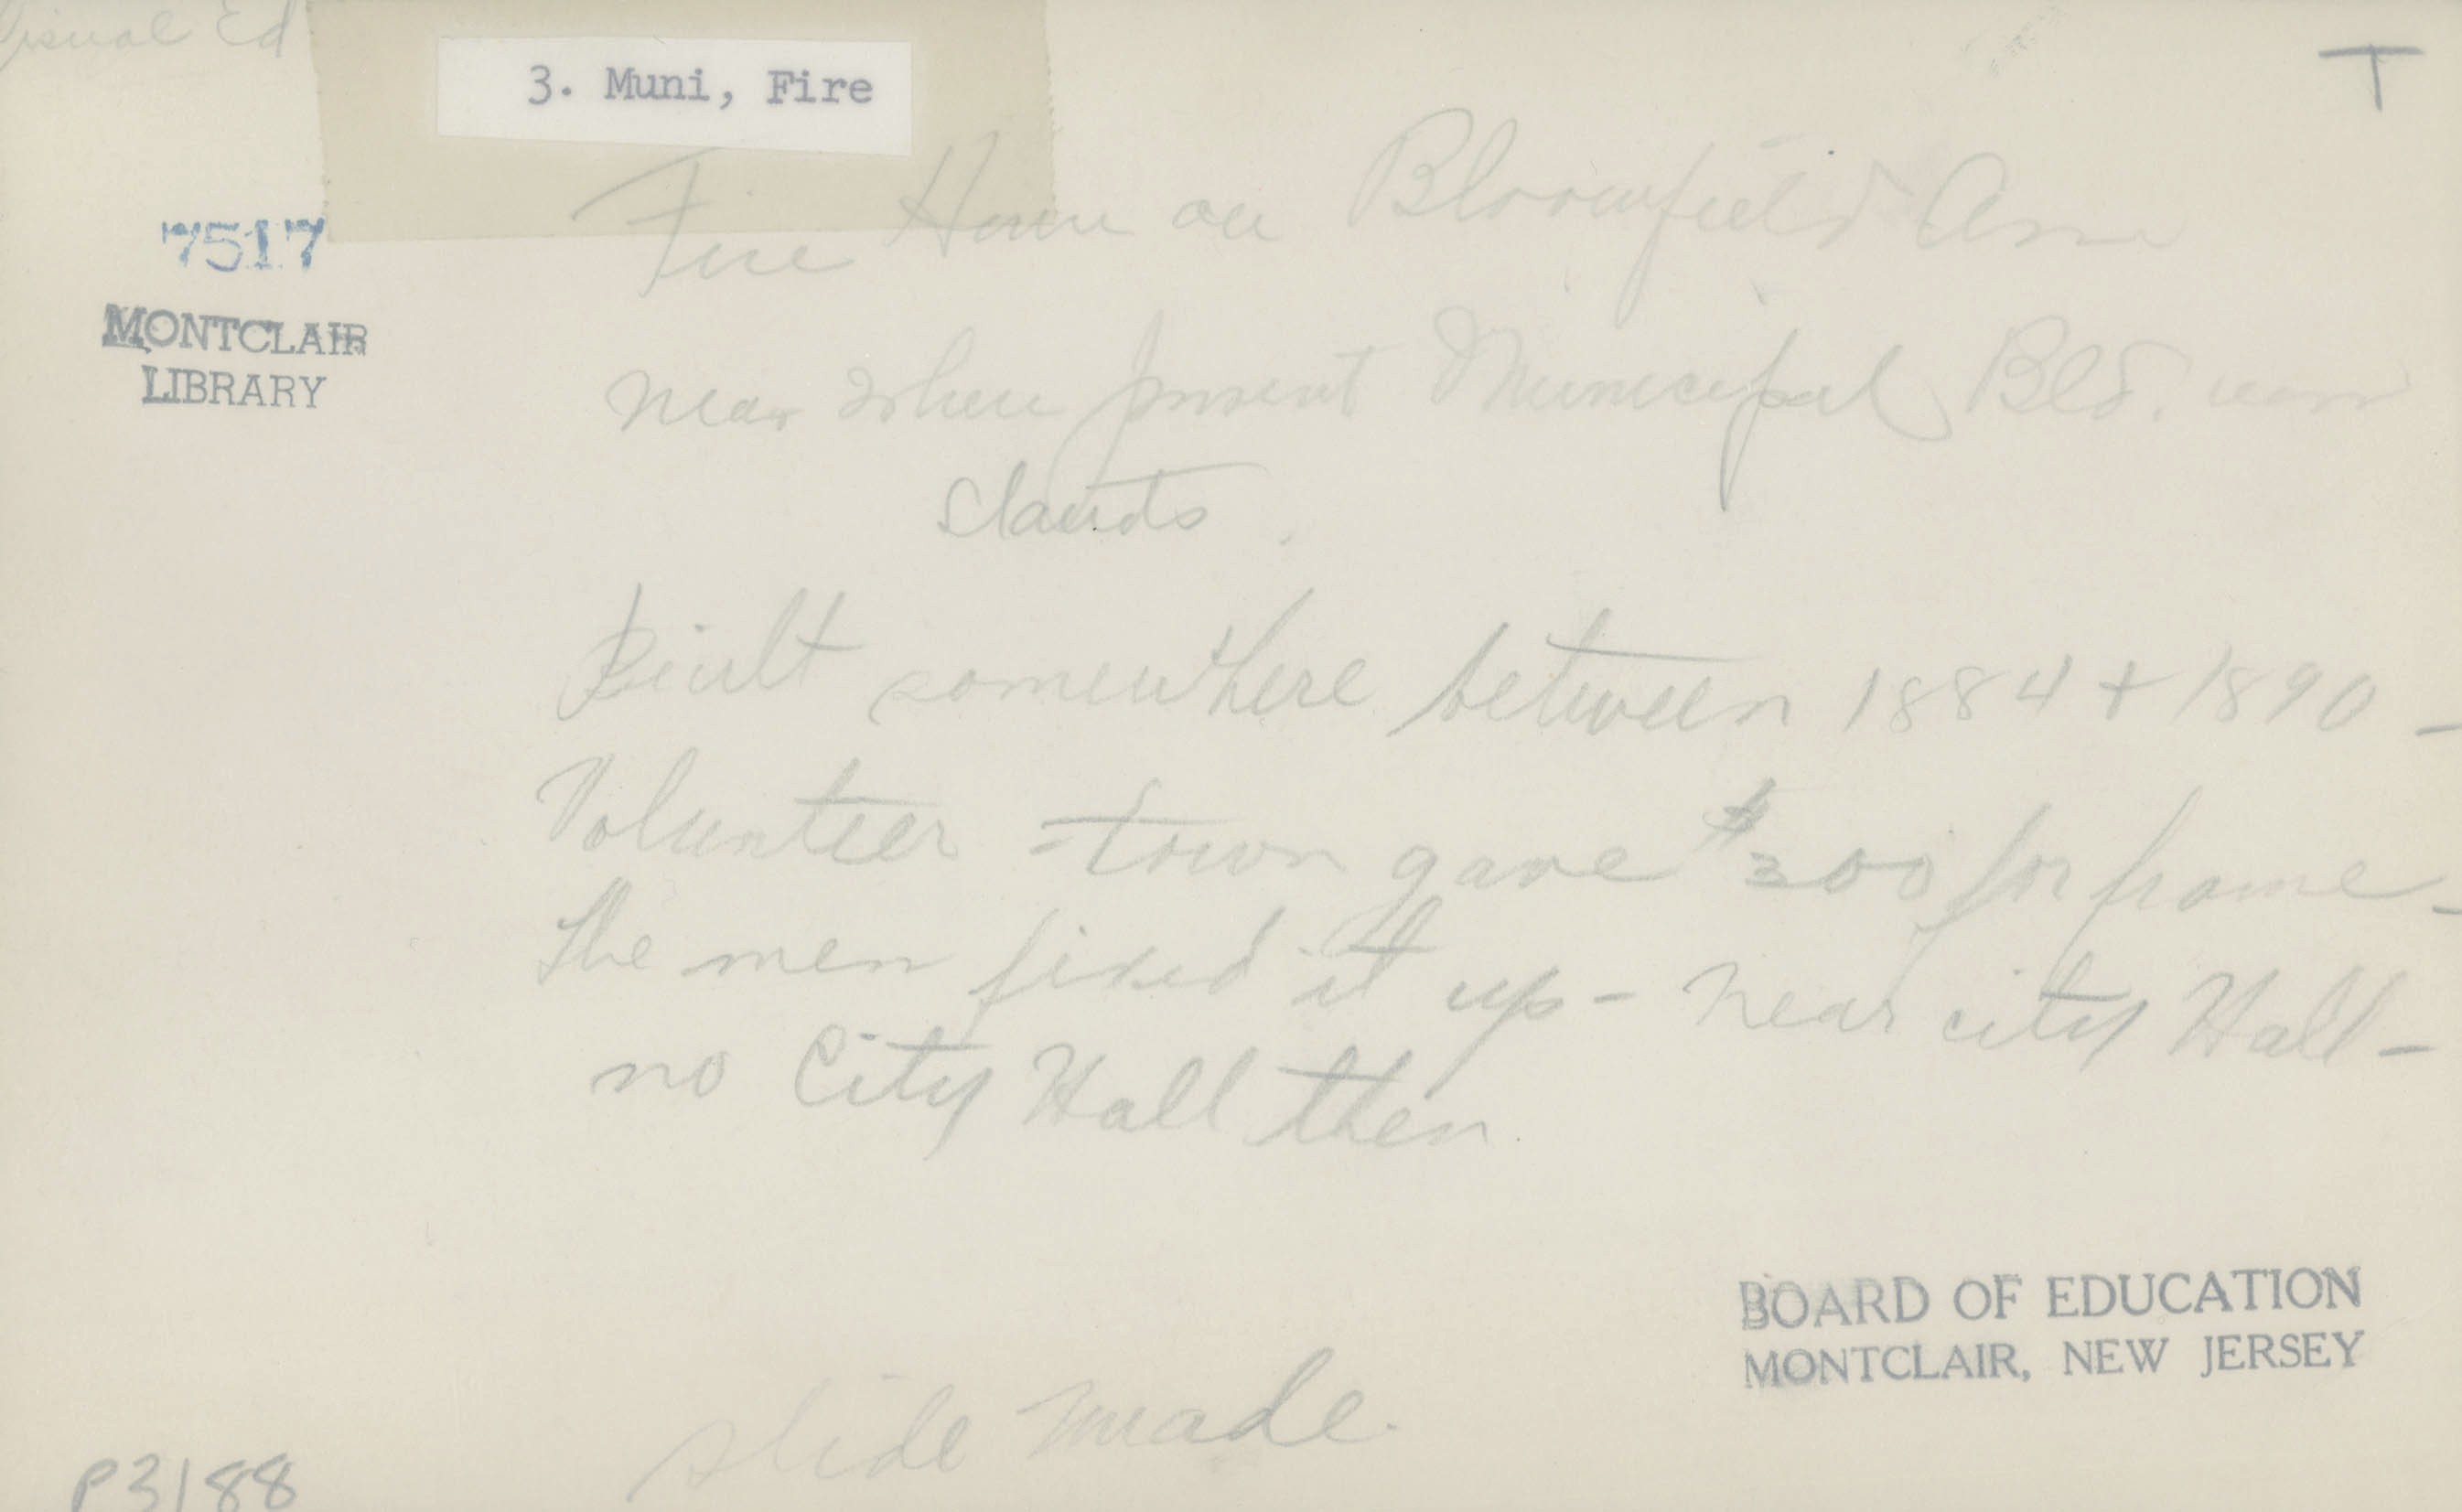 Visual Ed
3. Muni, Fire
T
Fire House on Bloomfield Ave
7517
MONTCLAIR
LIBRARY
near where present Municipal Bld. now
stands.
Built somewhere between 1884 + 1890 -
Volunteer - town gave $300 for frame -
the men fixed it up - near city Hall -
no City Hall then.
BOARD OF EDUCATION
MONTCLAIR, NEW JERSEY
slide made.
P3188